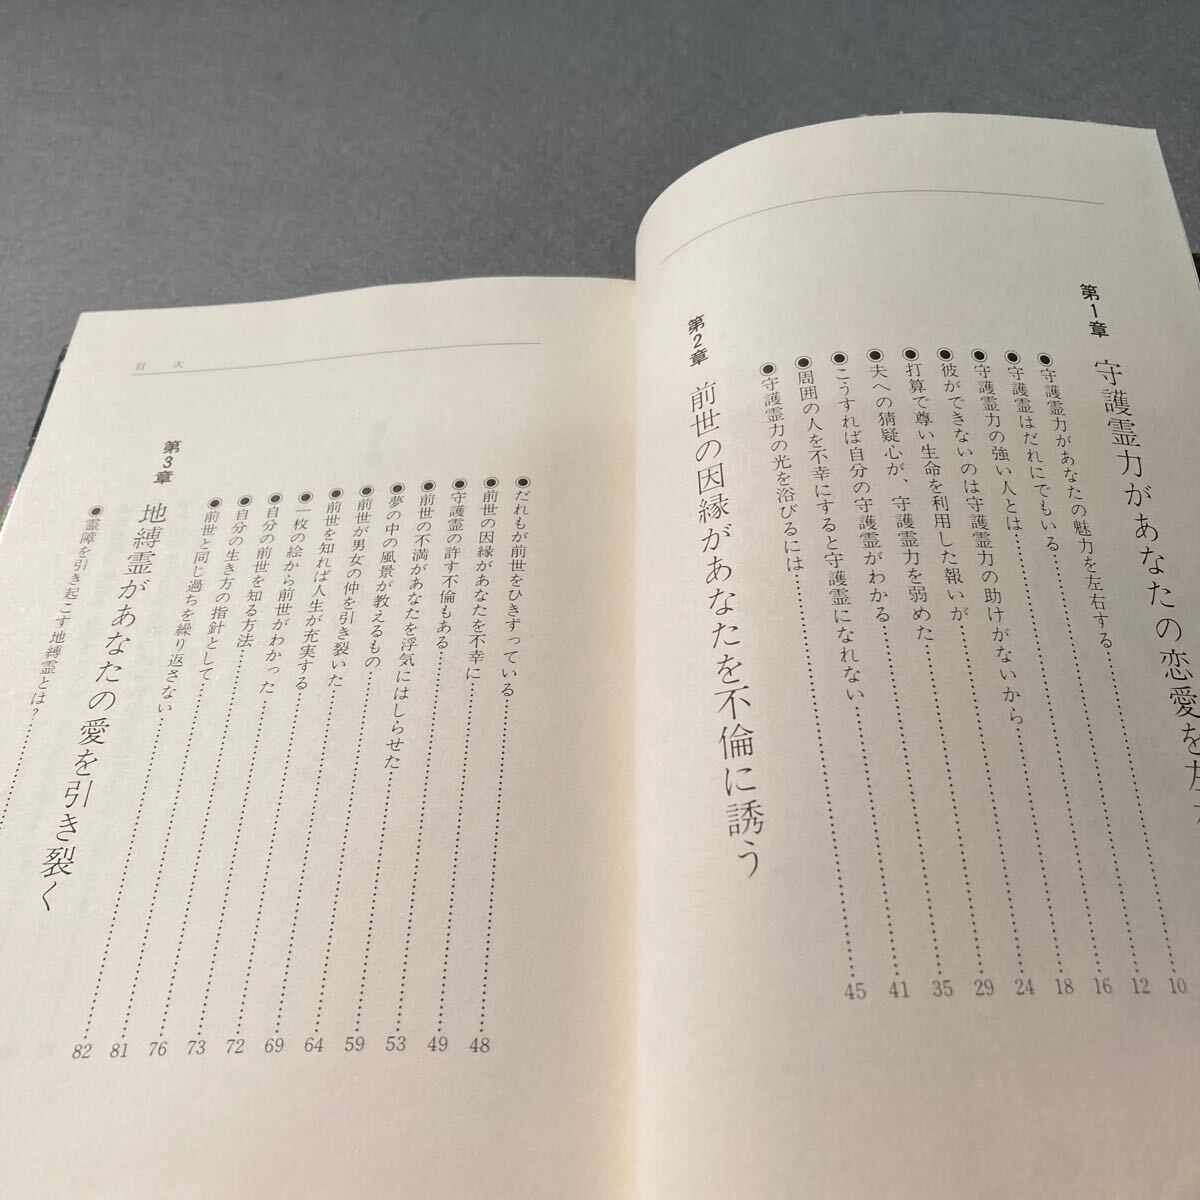 第1章 守護霊力があなたの恋愛を左
●守護霊力があなたの魅力を左右する……10
●守護霊はだれにでもいる……12
●守護霊力の強い人とは……16
●彼ができないのは守護霊力の助けがないから……18
●打算で尊い生命を利用した報いが……24
●夫への猜疑心が、守護霊力を弱めた……29
●こうすれば自分の守護霊がわかる……35
●周囲の人を不幸にすると守護霊になれない……41
●守護霊力の光を浴びるには……45
第2章 前世の因縁があなたを不倫に誘う
目次
●だれもが前世をひきずっている……48
●前世の因縁があなたを不幸に……49
●守護霊の許す不倫もある……53
●前世の不満があなたを浮気にはしらせた……59
●夢の中の風景が教えるもの……64
●前世が男女の仲を引き裂いた……69
●前世を知れば人生が充実する……72
●一枚の絵から前世がわかった……73
●自分の前世を知る方法……76
●自分の生き方の指針として……81
●前世と同じ過ちを繰り返さない……82
第3章 地縛霊があなたの愛を引き裂く
●霊障を引き起こす地縛霊とは?……